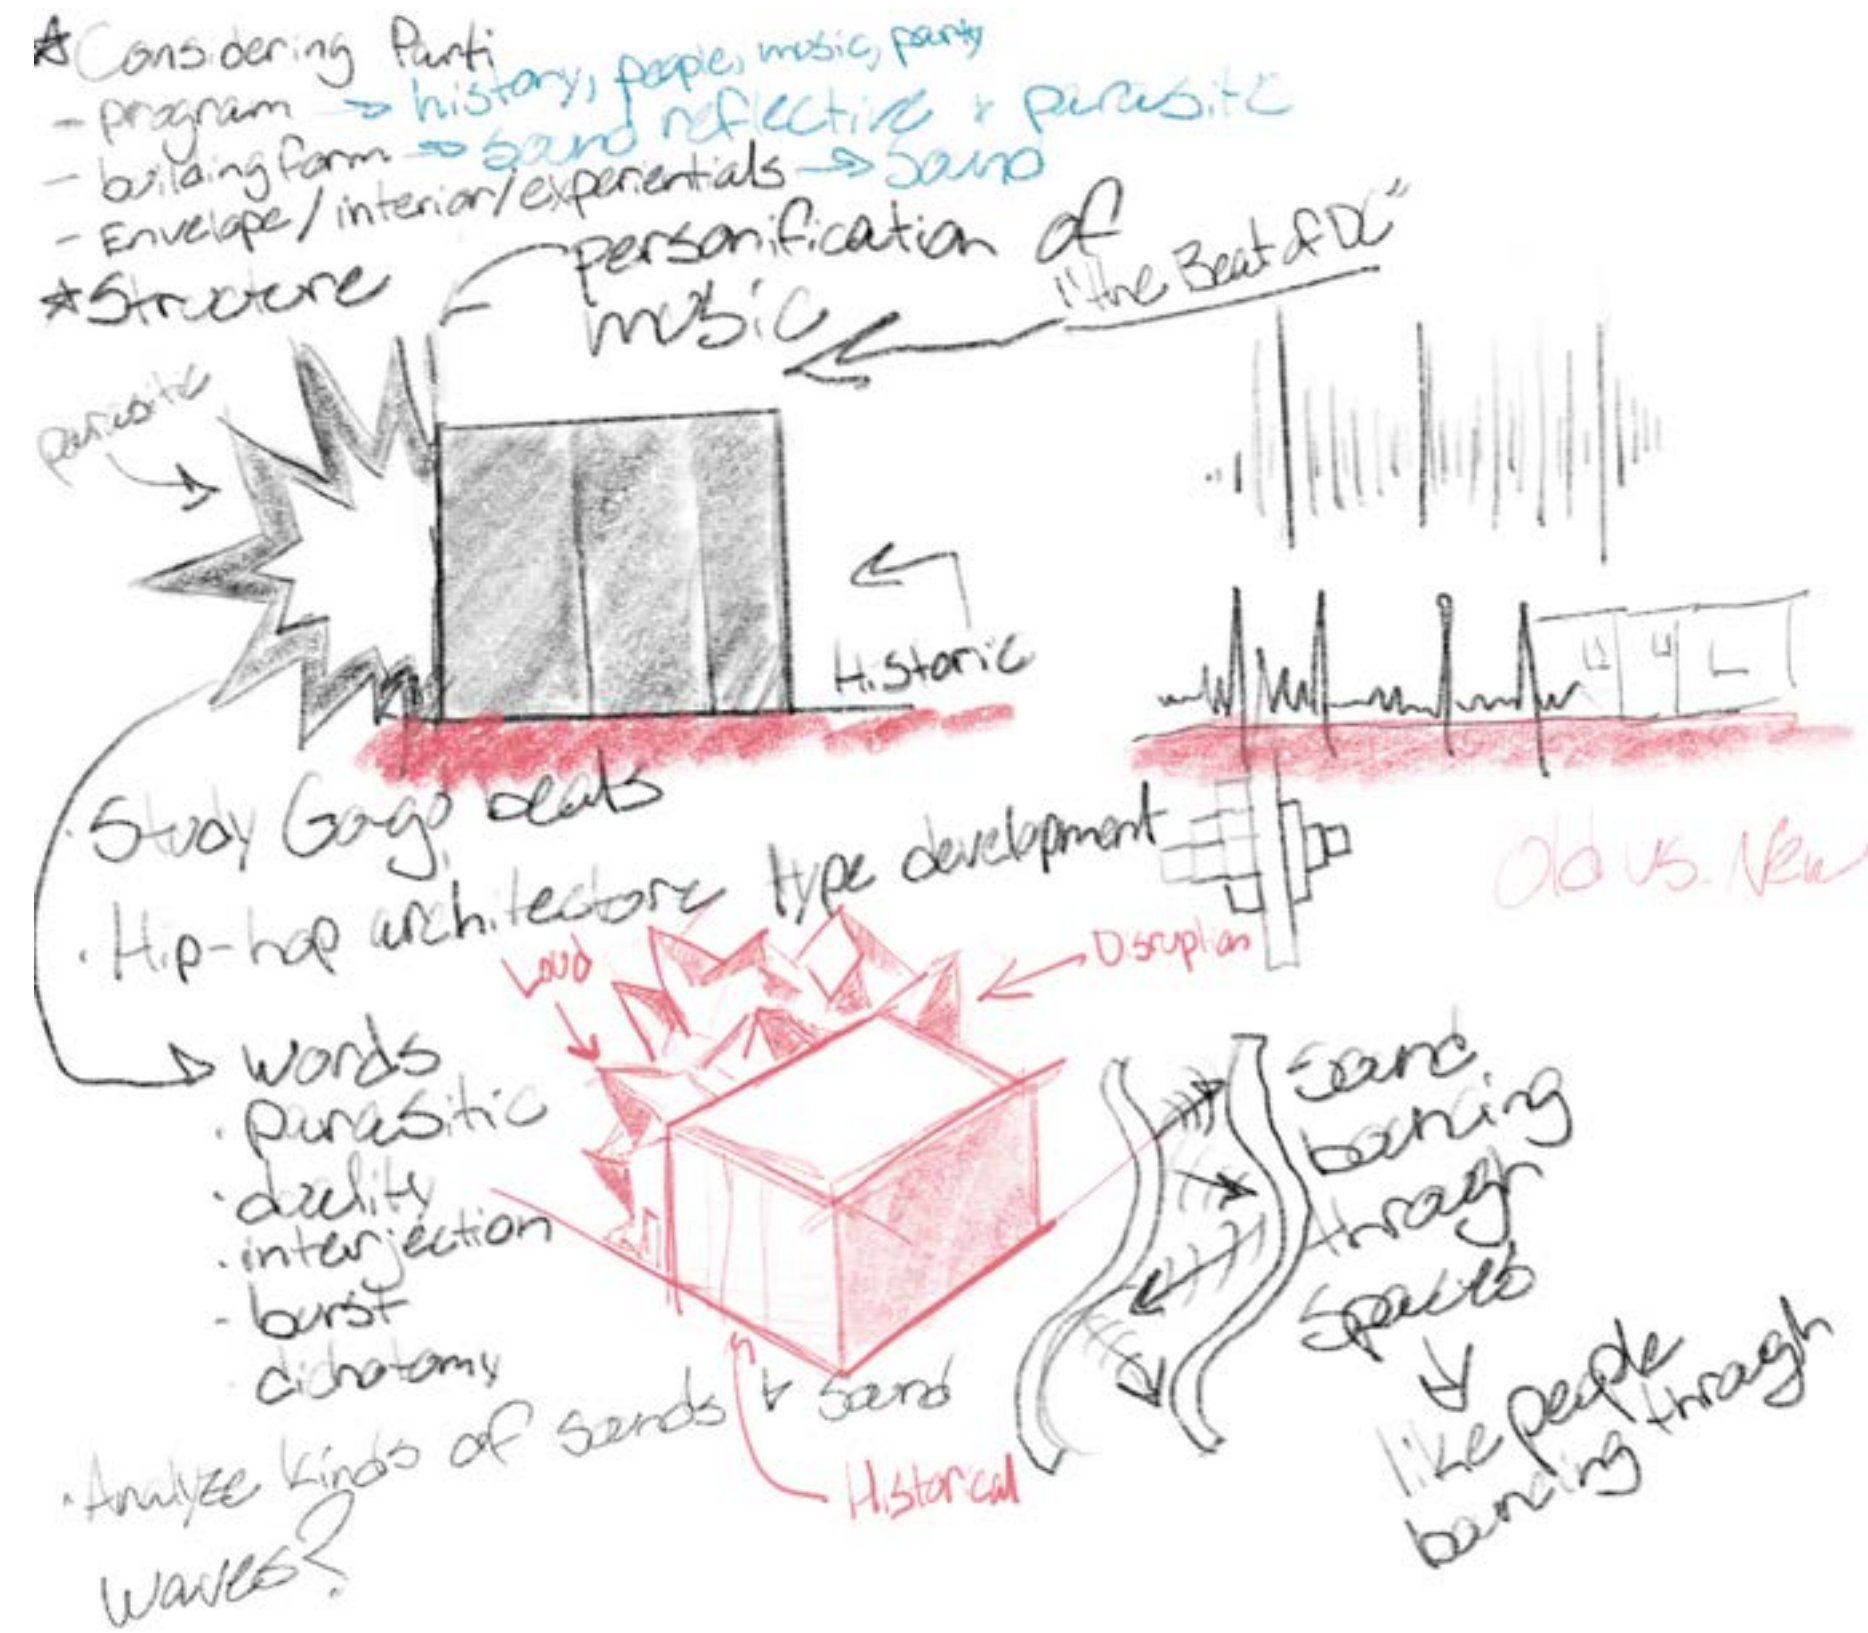 ☆ Considering Parti
- program → history, people, music, party
- building form → sound reflective & parasitic
- Envelope/interior/experientials → Sound
☆ Structure
personification of
music
"the Beat of DC"
parasitic
Historic
· Study Gogo beats
· Hip-hop architecture type development
Old vs. New
Loud
Disruption
words
· parasitic
· duality
· interjection
- burst
· dichotomy
Sound
bouncing
through
spaces
like people
bouncing through
· Analyze kinds of sounds & sound
waves?
Historical